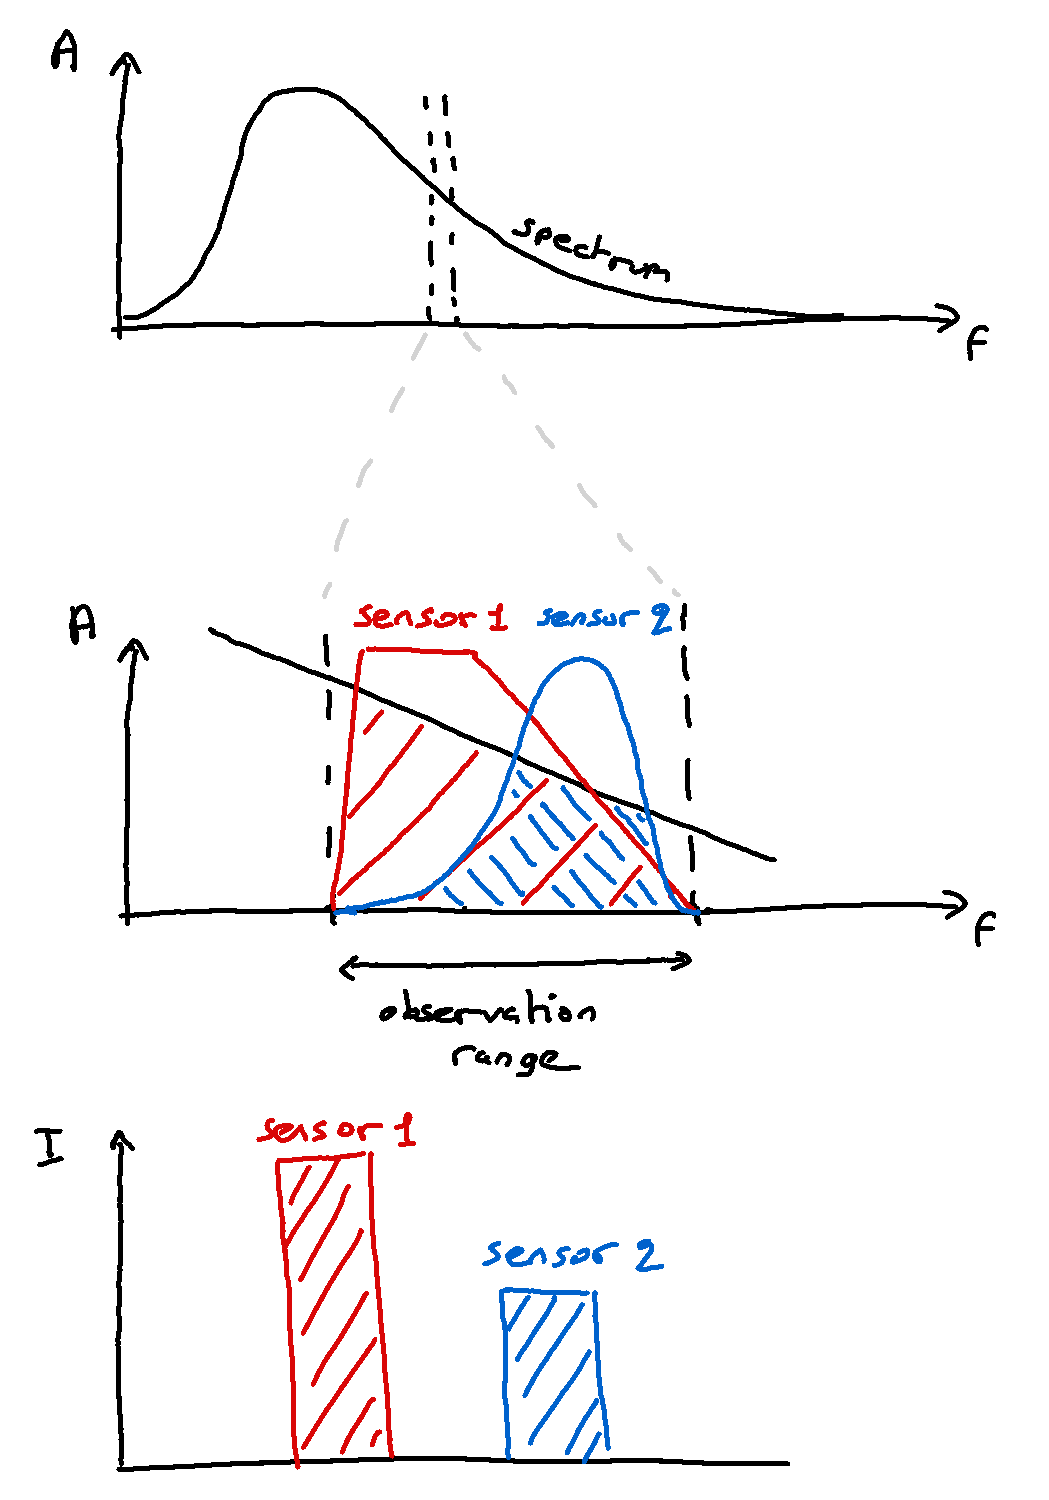 A
spectrum
F
A
sensor 1 sensor 2
F
observation
range
I
sensor 1
sensor 2